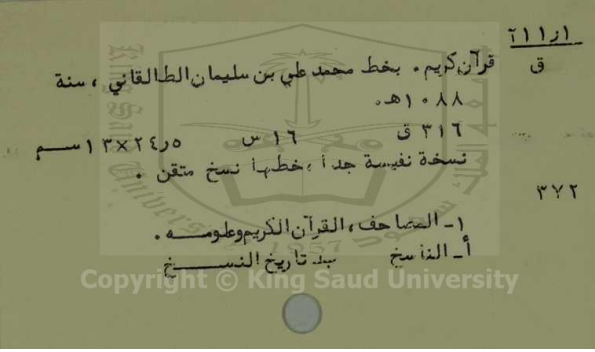 ١ر٢١١
ق
قرآن كريم . بخط محمد علي بن سليمان الطالقاني ، سنة
١٠٨٨هـ
٣١٦ ق ١٦ س ٥ر٢٤×١٣ سم
نسخة نفيسة جدا ، خطها نسخ متقن .
٣٧٢
١- المصاحف ، القرآن الكريم وعلومه .
أ- الناسخ ب- تاريخ النسخ
King Saud University
1957
Copyright © King Saud University